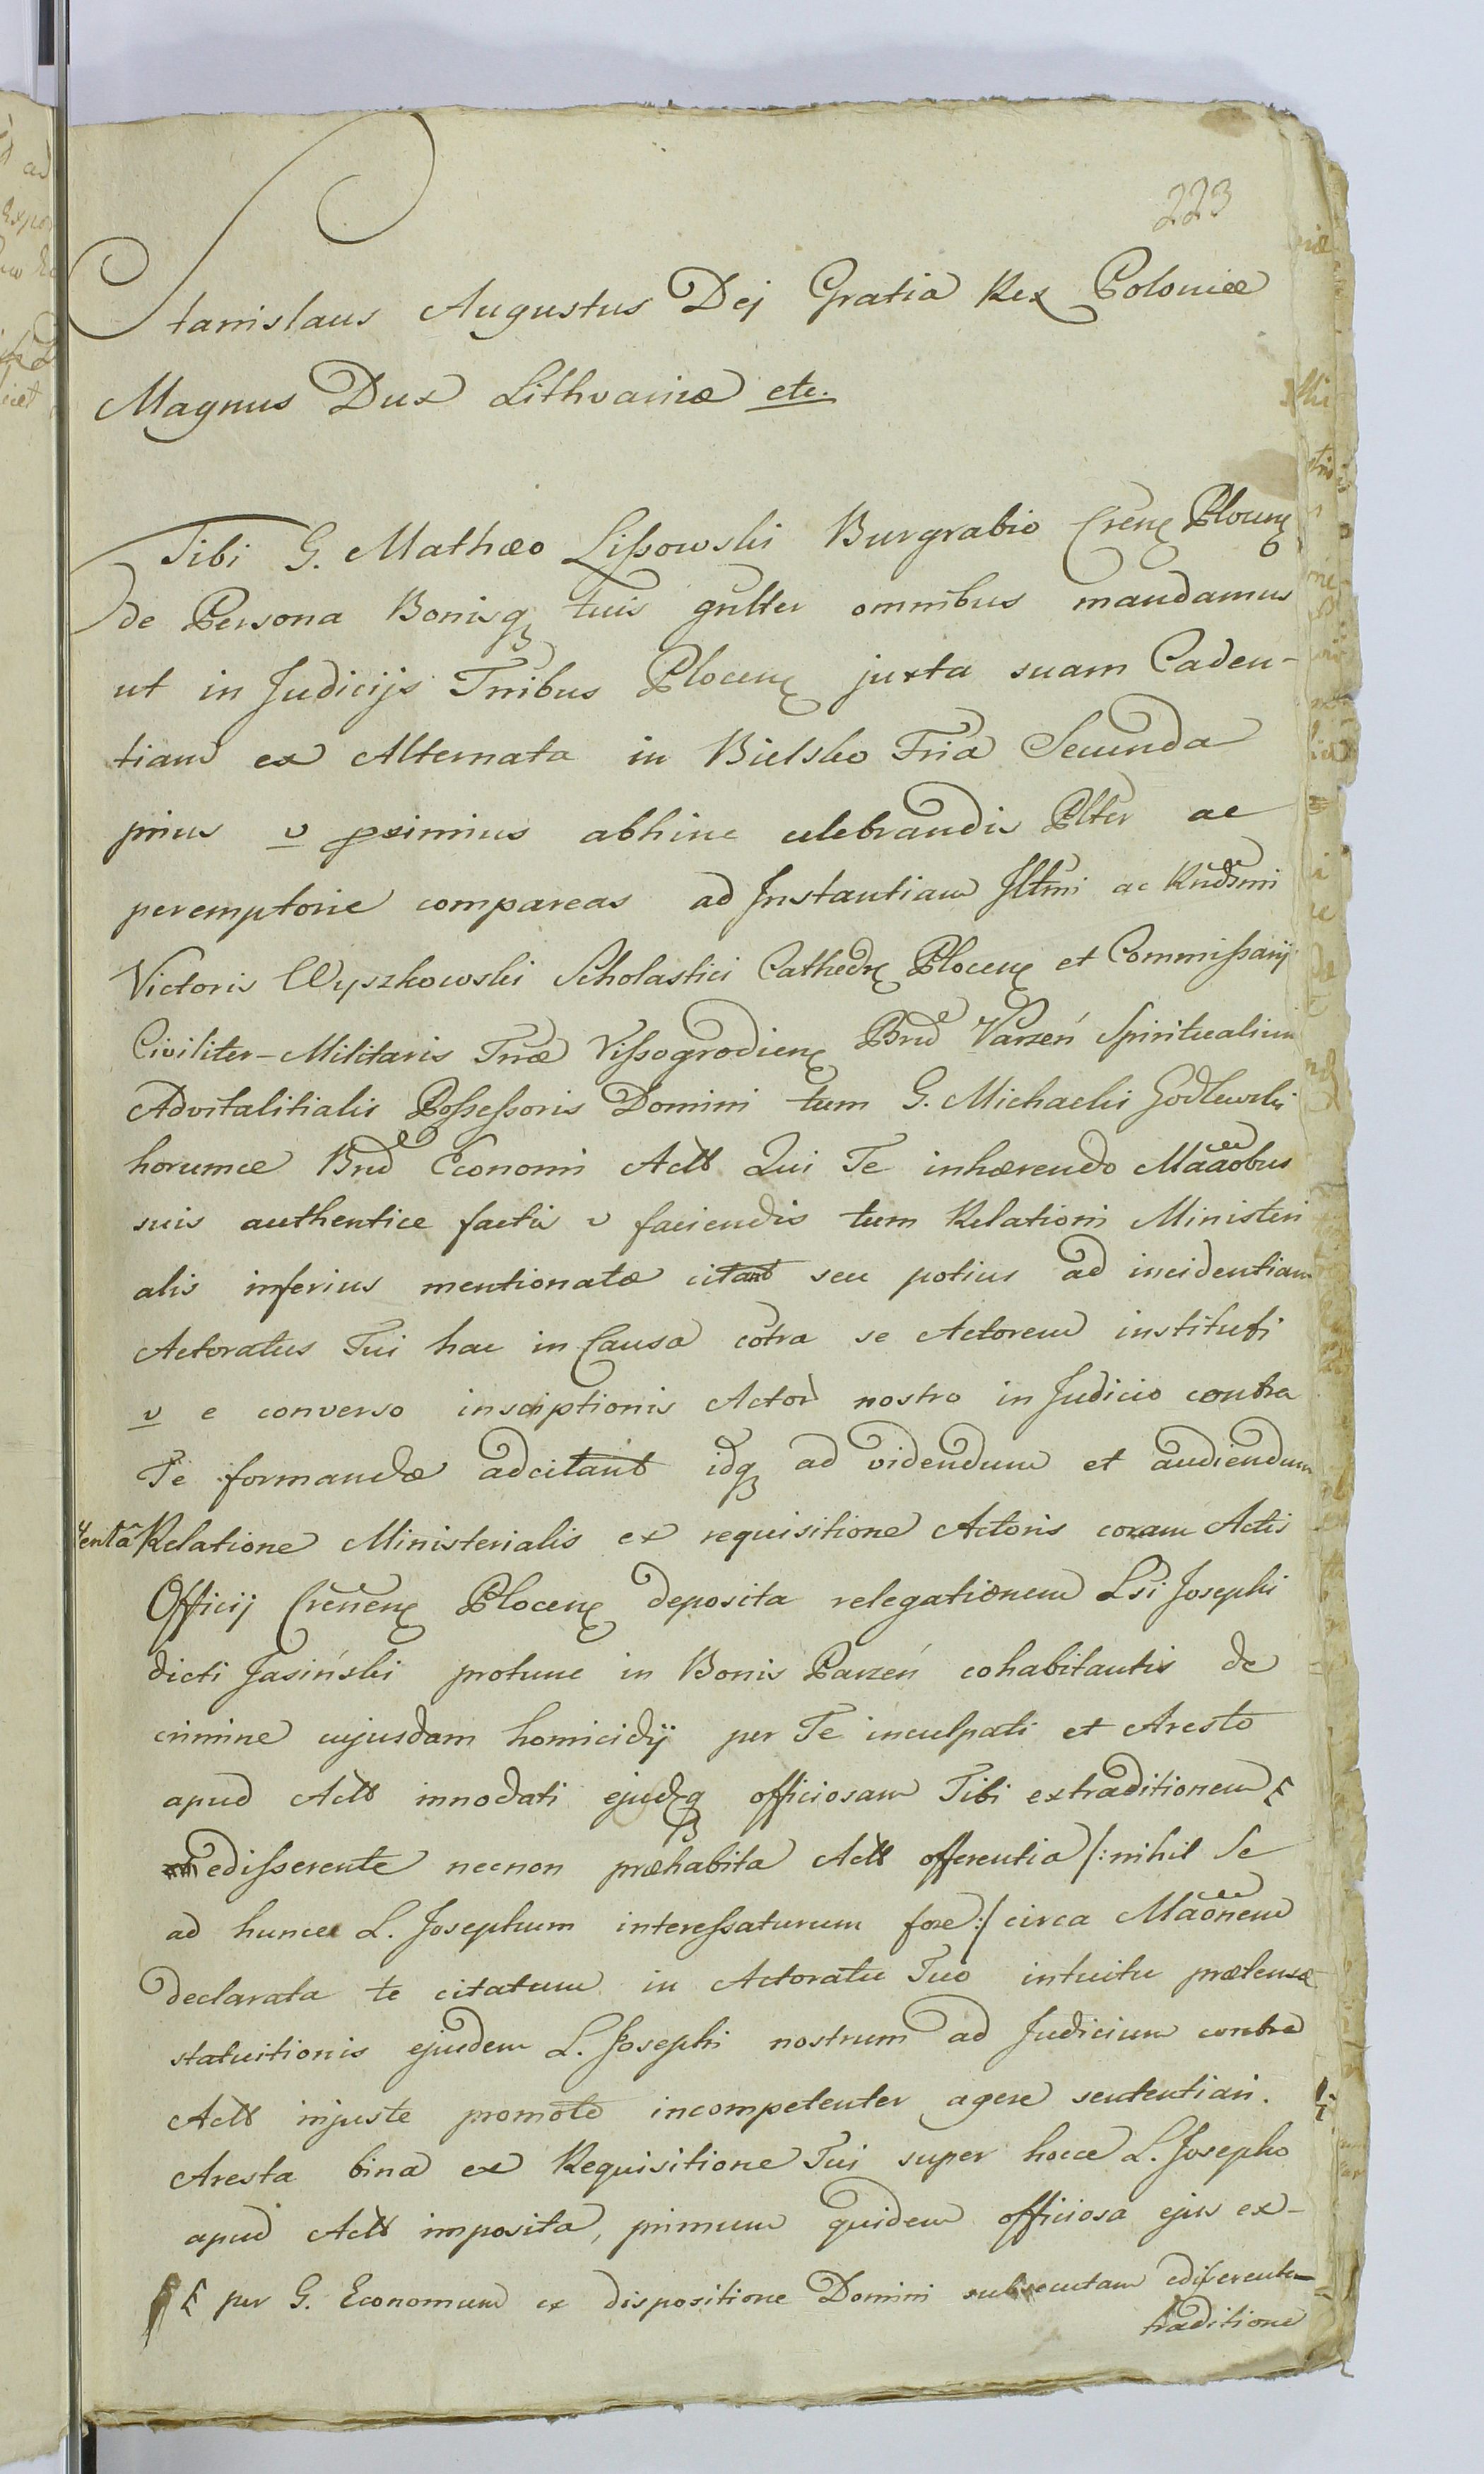 223
Stanislaus Augustus Dej Gratia Rex Poloniæ
Magnus Dux Lithvaniæ etc.
Tibi G. Mathæo Lissowski Burgrabio Cren̄ Plocen̄
de Persona Bonisq tuis gn̄lter omnibus mandamus
ut in Judicijs Tn̄ibus Plocen̄ juxta suam Caden-
tiam ex Alternata in Bielsko Fria Secunda
prius v proximius abhinc celebrandis Plter ac
peremptorie compareas ad Instantiam Illmi ac Rndmi
Victoris Wyszkowski Scholastici Cathedr Plocen̄ et Commissarij
Civiliter-Militaris Tn̄æ Vissogrodien̄ Bnd Parzeń Spiritualium
Advitalitialis Possessoris Domini tum G. Michaelis Godlewski
horumce Bnd Economi Actt Qui Te inhærendo Mãaõbus
suis authentice factis v faciendis tum Relationi Ministeri
alis inferius mentionatæ citant seu potius ad incidentiam
Actoratus Tui hac in Causa cõtra se Actorem institufi
v e converso inscriptionis Actor nostro in Judicio contra
Te formandæ adcitant idq ad videndum et audiendum
Relatione Ministerialis ex requisitione Actoris coram Actis
Officij Cren̄en̄ Plocen̄ deposita relegationem Lsi Josephi
dicti Jasiński protunc in Bonis Parzeń cohabitantis de
crimine cujusdam homicidij per Te inculpati et Aresto
apud Actt innodati ejusdq officiosam Tibi extraditionem
edisserente necnon præhabita Actt offerentia /:nihil Se
ad hunce L. Josephum interessaturum fore:/ circa Mãõnem
declarata te citatum in Actoratu Tuo intuitu prætensæ
statuitionis ejusdem L. Josephi nostrum ad Judicium contra
Actt injuste promoto incompetenter agere sententiari.
Aresta bina ex Requisitione Tui super hocce L. Josepho
apud Actt imposita, primum quidem officiosa ejus ex-
per G. Economum ex dispositione Domini subsecutam edisserente
traditione